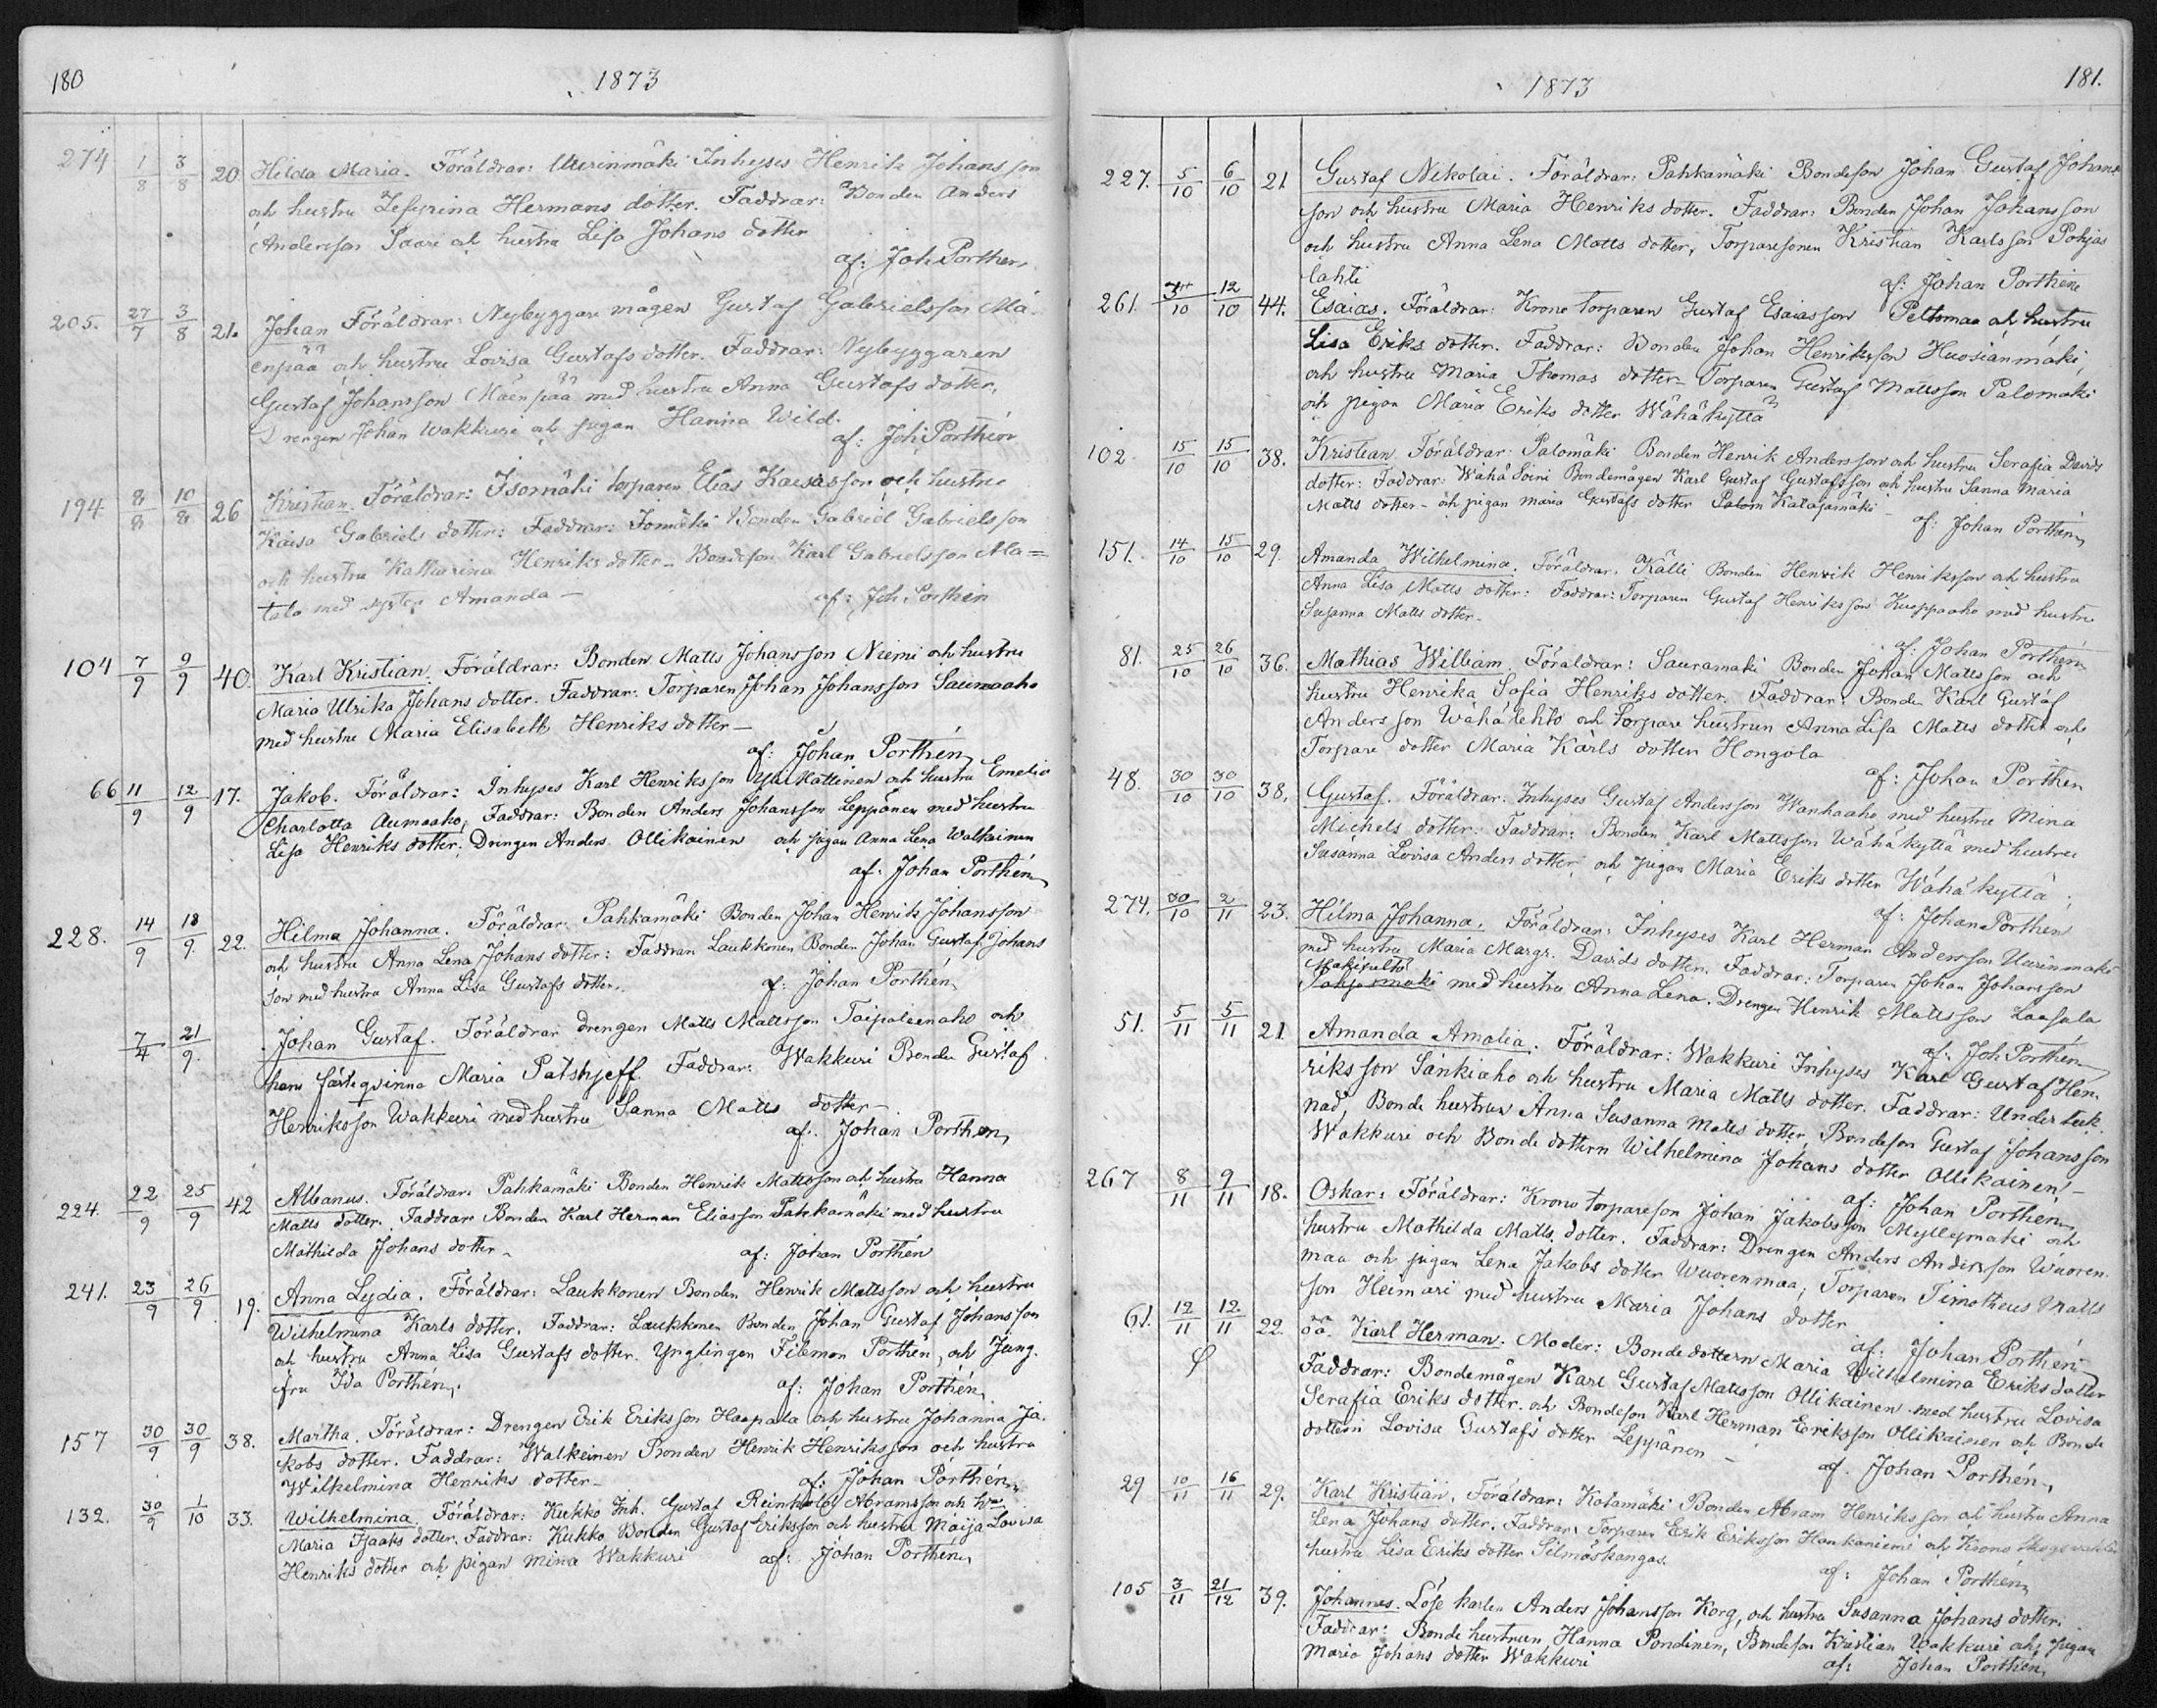 180
1873
274 1/8 3/8 20 Hilda Maria. Föräldrar: Uurinmäki Inhyses Henrik Johansson
och hustru Zefyrina Hermans dotter. Faddrar: Bonden Anders
Andersson Saari och hustru Lisa Johans dotter
af: Joh Porthen
205. 27/7 3/8 21. Johan Föräldrar: Nybyggare mågen Gustaf Gabrielsson Mä-
enpää och hustru Lovisa Gustafs dotter. Faddrar: Nybyggaren
Gustaf Johansson Mäenpää med hustru Anna Gustafs dotter,
Drengen Johan Wakkuri och pigan Hanna Wild.
af: Joh Porthén
194 8/8 10/8 26 Kristian. Föräldrar: Isomäki torparen Elias Kaisasson och hustru
Kaisa Gabriels dotter: Faddrar: Isomäki Bonden Gabriel Gabrielsson
och hustru Katharina Henriks dotter – Bondeson Karl Gabrielsson Ma=
tala med syster Amanda –
af: Joh Porthén
104 7/9 9/9 40. Karl Kristian. Föräldrar: Bonden Matts Johansson Niemi och hustru
Maria Ulrika Johans dotter. Faddrar: Torparen Johan Johansson Saunaaho
med hustru Maria Elisabeth Henriks dotter –
af: Johan Porthén
66 11/9 12/9 17. Jakob. Föräldrar: Inhyses Karl Henriksson Yli Mattinen och hustru Emelia
Charlotta Aumaaho, Faddrar: Bonden Anders Johansson Leppänen med hustru
Lisa Henriks dotter; Drengen Anders Ollikainen och pigan Anna Lena Walkainen
af: Johan Porthén
228. 14/9 18/9. 22. Hilma Johanna. Föräldrar: Pahkamäki Bonden Johan Henrik Johansson
och hustru Anna Lena Johans dotter: Faddrar Laukkonen Bonden Johan Gustaf Johans
son med hustru Anna Lisa Gustafs dotter.
af: Johan Porthén
7/4 21/9. Johan Gustaf. Föräldrar drengen Matts Mattsson Taipaleenaho och
hans fästeqvinna Maria Patshjeff Faddrar: Wakkuri Bonden Gustaf
Henriksson Wakkuri med hustru Sanna Matts dotter –
af: Johan Porthen
224. 22/9 25/9 42 Albanus. Föräldrar: Pahkamäki Bonden Henrik Mattsson och hustru Hanna
Matts dotter. Faddrar Bonden Karl Herman Eliasson Pahkamäki med hustru
Mathilda Johans dotter –
af: Johan Porthén
241. 23/9 26/9 19. Anna Lydia. Föräldrar: Laukkonen Bonden Henrik Mattsson och hustru
Wilhelmina Karls dotter. Faddrar: Laukkonen Bonden Johan Gustaf Johansson
och hustru Anna Lisa Gustafs dotter. Ynglingen Filemon Porthén, och Jung-
fru Ida Porthén.
af: Johan Porthén
157 30/9 30/9 38. Martha. Föräldrar: Drengen Erik Eriksson Haapala och hustru Johanna Ja-
kobs dotter. Faddrar: Walkeinen Bonden Henrik Henriksson och hustru
Wilhelmina Henriks dotter –
af: Johan Porthén
132. 30/9 1/10 33. Wilhelmina. Föräldrar: Kukko Inh. Gustaf Reinhold Abramsson och h:u
Maria Isaaks dotter. Faddrar: Kukko Bonden Gustaf Eriksson och hustru Maija Lovisa
Henriks dotter och pigan Mina Wakkuri
af: Johan Porthén
181.
1873
227. 5/10 6/10 21 Gustaf Nikolai. Föräldrar: Pahkamäki Bondeson Johan Gustaf Johans
son och hustru Maria Henriks dotter. Faddrar: Bonden Johan Johansson
och hustru Anna Lena Matts dotter, Torparesonen Kristian Karlsson Pohjas
lahti
af: Johan Porthén
261. 3/10 12/10 44. Esaias. Föräldrar: Krono torparen Gustaf Esaiasson Peltomaa och hustru
Lisa Eriks dotter. Faddrar: Bonden Johan Henriksson Huosianmäki,
och hustru Maria Thomas dotter – Torparen Gustaf Mattsson Palomäki
och pigan Maria Eriks dotter Wähäkyttä
102. 15/10 15/10 38. Kristian. Föräldrar: Palomäki Bonden Henrik Andersson och hustru Serafia Davids
dotter: Faddrar: Wähä Soini Bondemågen Karl Gustaf Gustafsson och hustru Sanna Maria
Matts dotter – och pigan Maria Gustafs dotter Palom Katajamäki –
af: Johan Porthén
151. 14/10 15/10 29. Amanda Wilhelmina. Föräldrar. Källi Bonden Henrik Henriksson och hustru
Anna Lisa Matts dotter: Faddrar: Torparen Gustaf Henriksson Kuoppaaho med hustru
Susanna Matts dotter –
af: Johan Porthén
81. 25/10 26/10 36. Mathias William. Föräldrar: Sauramäki Bonden Johan Mattsson och
hustru Henrika Sofia Henriks dotter. Faddrar: Bonden Karl Gustaf
Andersson Wähälehto och Torpare hustrun Anna Lisa Matts dotter och
Torpare dotter Maria Karls dotter Hongola
af: Johan Porthen
48. 30/10 30/10 38. Gustaf. Föräldrar: Inhyses Gustaf Andersson Wanhaaho med hustru Mina
Michels dotter: Faddrar: Bonden Karl Mattsson Wähäkyttä med hustru
Susanna Lovisa Anders dotter, och pigan Maria Eriks dotter Wähäkyttä;
af: Johan Porthen
274. 30/10 2/11 23. Hilma Johanna. Föräldrar: Inhyses Karl Herman Andersson Uurinmäki
med hustru Maria Margr. Davids dotter. Faddrar: Torparen Johan Johansson
med hustru Anna Lena. Drengen Henrik Mattsson Laasala
af: Joh Porthén
51. 5/11 5/11 21 Amanda Amalia. Föräldrar: Wakkuri Inhyses Karl Gustaf Hen-
riksson Sänkiaho och hustru Maria Matts dotter. Faddrar: Underteck-
nad, Bonde hustrun Anna Susanna Matts dotter, Bondeson Gustaf Johansson
Wakkuri och Bonde dottern Wilhelmina Johans dotter Ollikainen –
af: Johan Porthén
267 8/11 9/11 18. Oskar: Föräldrar: Krono torpareson Johan Jakobsson Myllymäki och
hustru Mathilda Matts dotter. Faddrar: Drengen Anders Andersson Wuoren-
maa och pigan Lena Jakobs dotter Wuorenmaa; Torparen Timotheus Matts
son Heimari med hustru Maria Johans dotter
af: Johan Porthén
61. 12/11 12/11 22. oä. Karl Herman. Moder: Bonde dottern Maria Wilhelmina Eriks dotter
Faddrar: Bondemågen Karl Gustaf Mattsson Ollikainen med hustru Lovisa
Serafia Eriks dotter och Bondeson Karl Herman Eriksson Ollikainen och Bonde
dottern Lovisa Gustafs dotter Leppänen –
af. Johan Porthén
29 10/11 16/11 29. Karl Kristian. Föräldrar: Katamäki Bonden Abram Henriksson och hustru Anna
Lena Johans dotter. Faddrar: Torparen Erik Eriksson Hankaniemi och Krono
hustru Lisa Eriks dotter Silmöskangas.
af: Johan Porthén
105 3/11 21/12 39. Johannes. Löse karlen Anders Johansson Korg, och hustru Susanna Johans dotter.
Faddrar: Bonde hustrun Hanna Pondinen, Bondeson Kristian Wakkuri och pigan
Maria Johans dotter Wakkuri
af: Johan Porthén